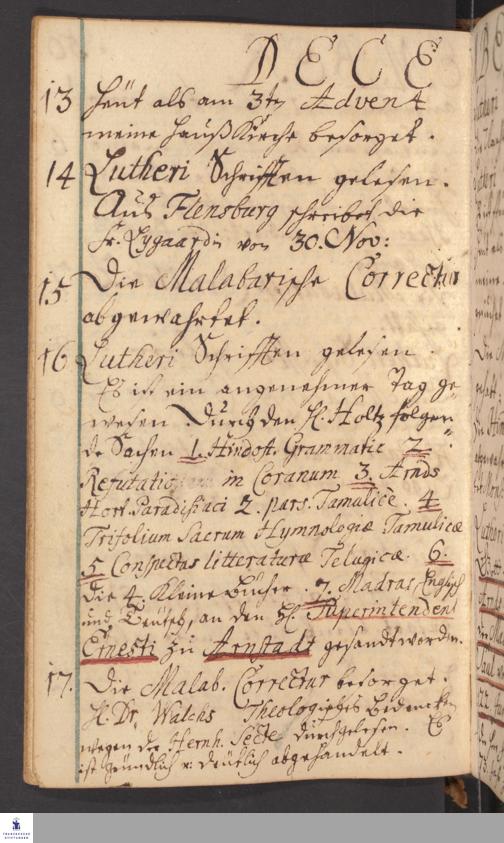 DECE
13 Heüt als am 3ten Advent
meine Hauß Kirche besorget.
14 Lutheri Schrifften gelesen.
Aus Flensburg schreibet die
Fr. Lygaardin von 30. Nov:
15 Die Malabarische Correctur
abgewahrtet.
16 Lutheri Schrifften gelesen.
Es ist ein angenehmer Tag ge
wesen. Durch den H. Holtz folgen
de Sachen 1. Hindost. Grammatic 2.
Refutation in Coranum 3. Arnds
Hort. Paradisiaci 2. pars. Tamulice. 4
Trifolium Sacrum Hymnologiæ Tamulicæ
5 Conspectus litteraturæ Telugicæ. 6.
die 4. Kleine Bücher. 7. Madras Englisch
und Deutsch, an den H. Superintendent
Ernesti zu Arnstadt gesandt worden.
17. Die Malab. Correctur besorget.
H. Dr. Walchs Theologisches Bedencken
wegen der Hernh. Secte durchgelesen. Es
ist gründlich u: deütlich abgehandelt.
FRANCKESCHE
STIFTUNGEN